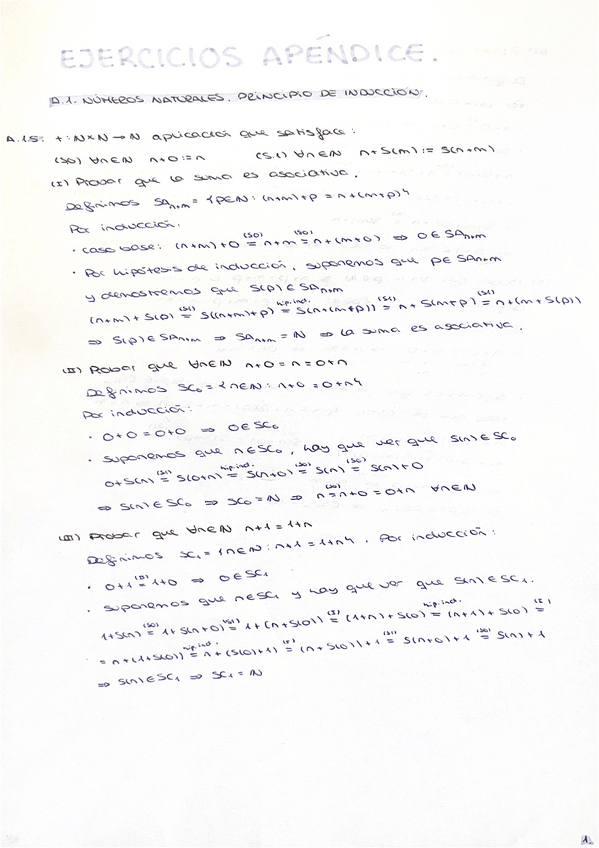 EJERCICIOS APÉNDICE.
A.1. NÚMEROS NATURALES. PRINCIPIO DE INDUCCIÓN.
A.1.5: + : N×N → N aplicación que satisface:
(S0) ∀n∈N n+0:=n (S.1) ∀n∈N n+S(m):= S(n+m)
(I) Probar que la suma es asociativa.
Definimos SAn,m = {p∈N: (n+m)+p = n+(m+p)}
Por inducción:
· caso base: (n+m)+0 (S0)= n+m (S0)= n+(m+0) ⇒ 0∈SAn,m
· Por hipótesis de inducción, suponemos que p∈SAn,m
y demostremos que S(p)∈SAn,m
(n+m)+S(p) (S1)= S((n+m)+p) hip.ind.= S(n+(m+p)) (S1)= n+S(m+p) (S1)= n+(m+S(p))
⇒ S(p)∈SAn,m ⇒ SAn,m = N ⇒ la suma es asociativa.
(II) Probar que ∀n∈N n+0=n=0+n
Definimos SC0 = {n∈N: n+0=0+n}
Por inducción:
· 0+0=0+0 ⇒ 0∈SC0
· suponemos que n∈SC0, hay que ver que S(n)∈SC0
0+S(n) (S1)= S(0+n) hip.ind.= S(n+0) (S0)= S(n) (S0)= S(n)+0
⇒ S(n)∈SC0 ⇒ SC0=N ⇒ n (S0)= n+0=0+n ∀n∈N
(III) Probar que ∀n∈N n+1=1+n
Definimos SC1 = {n∈N: n+1=1+n}. Por inducción:
· 0+1 (II)= 1+0 ⇒ 0∈SC1
· suponemos que n∈SC1 y hay que ver que S(n)∈SC1.
1+S(n) (S0)= 1+S(n+0) (S1)= 1+(n+S(0)) (I)= (1+n)+S(0) hip.ind.= (n+1)+S(0) (I)=
= n+(1+S(0)) hip.ind.= n+(S(0)+1) (I)= (n+S(0))+1 (S1)= S(n+0)+1 (S0)= S(n)+1
⇒ S(n)∈SC1 ⇒ SC1=N
1.